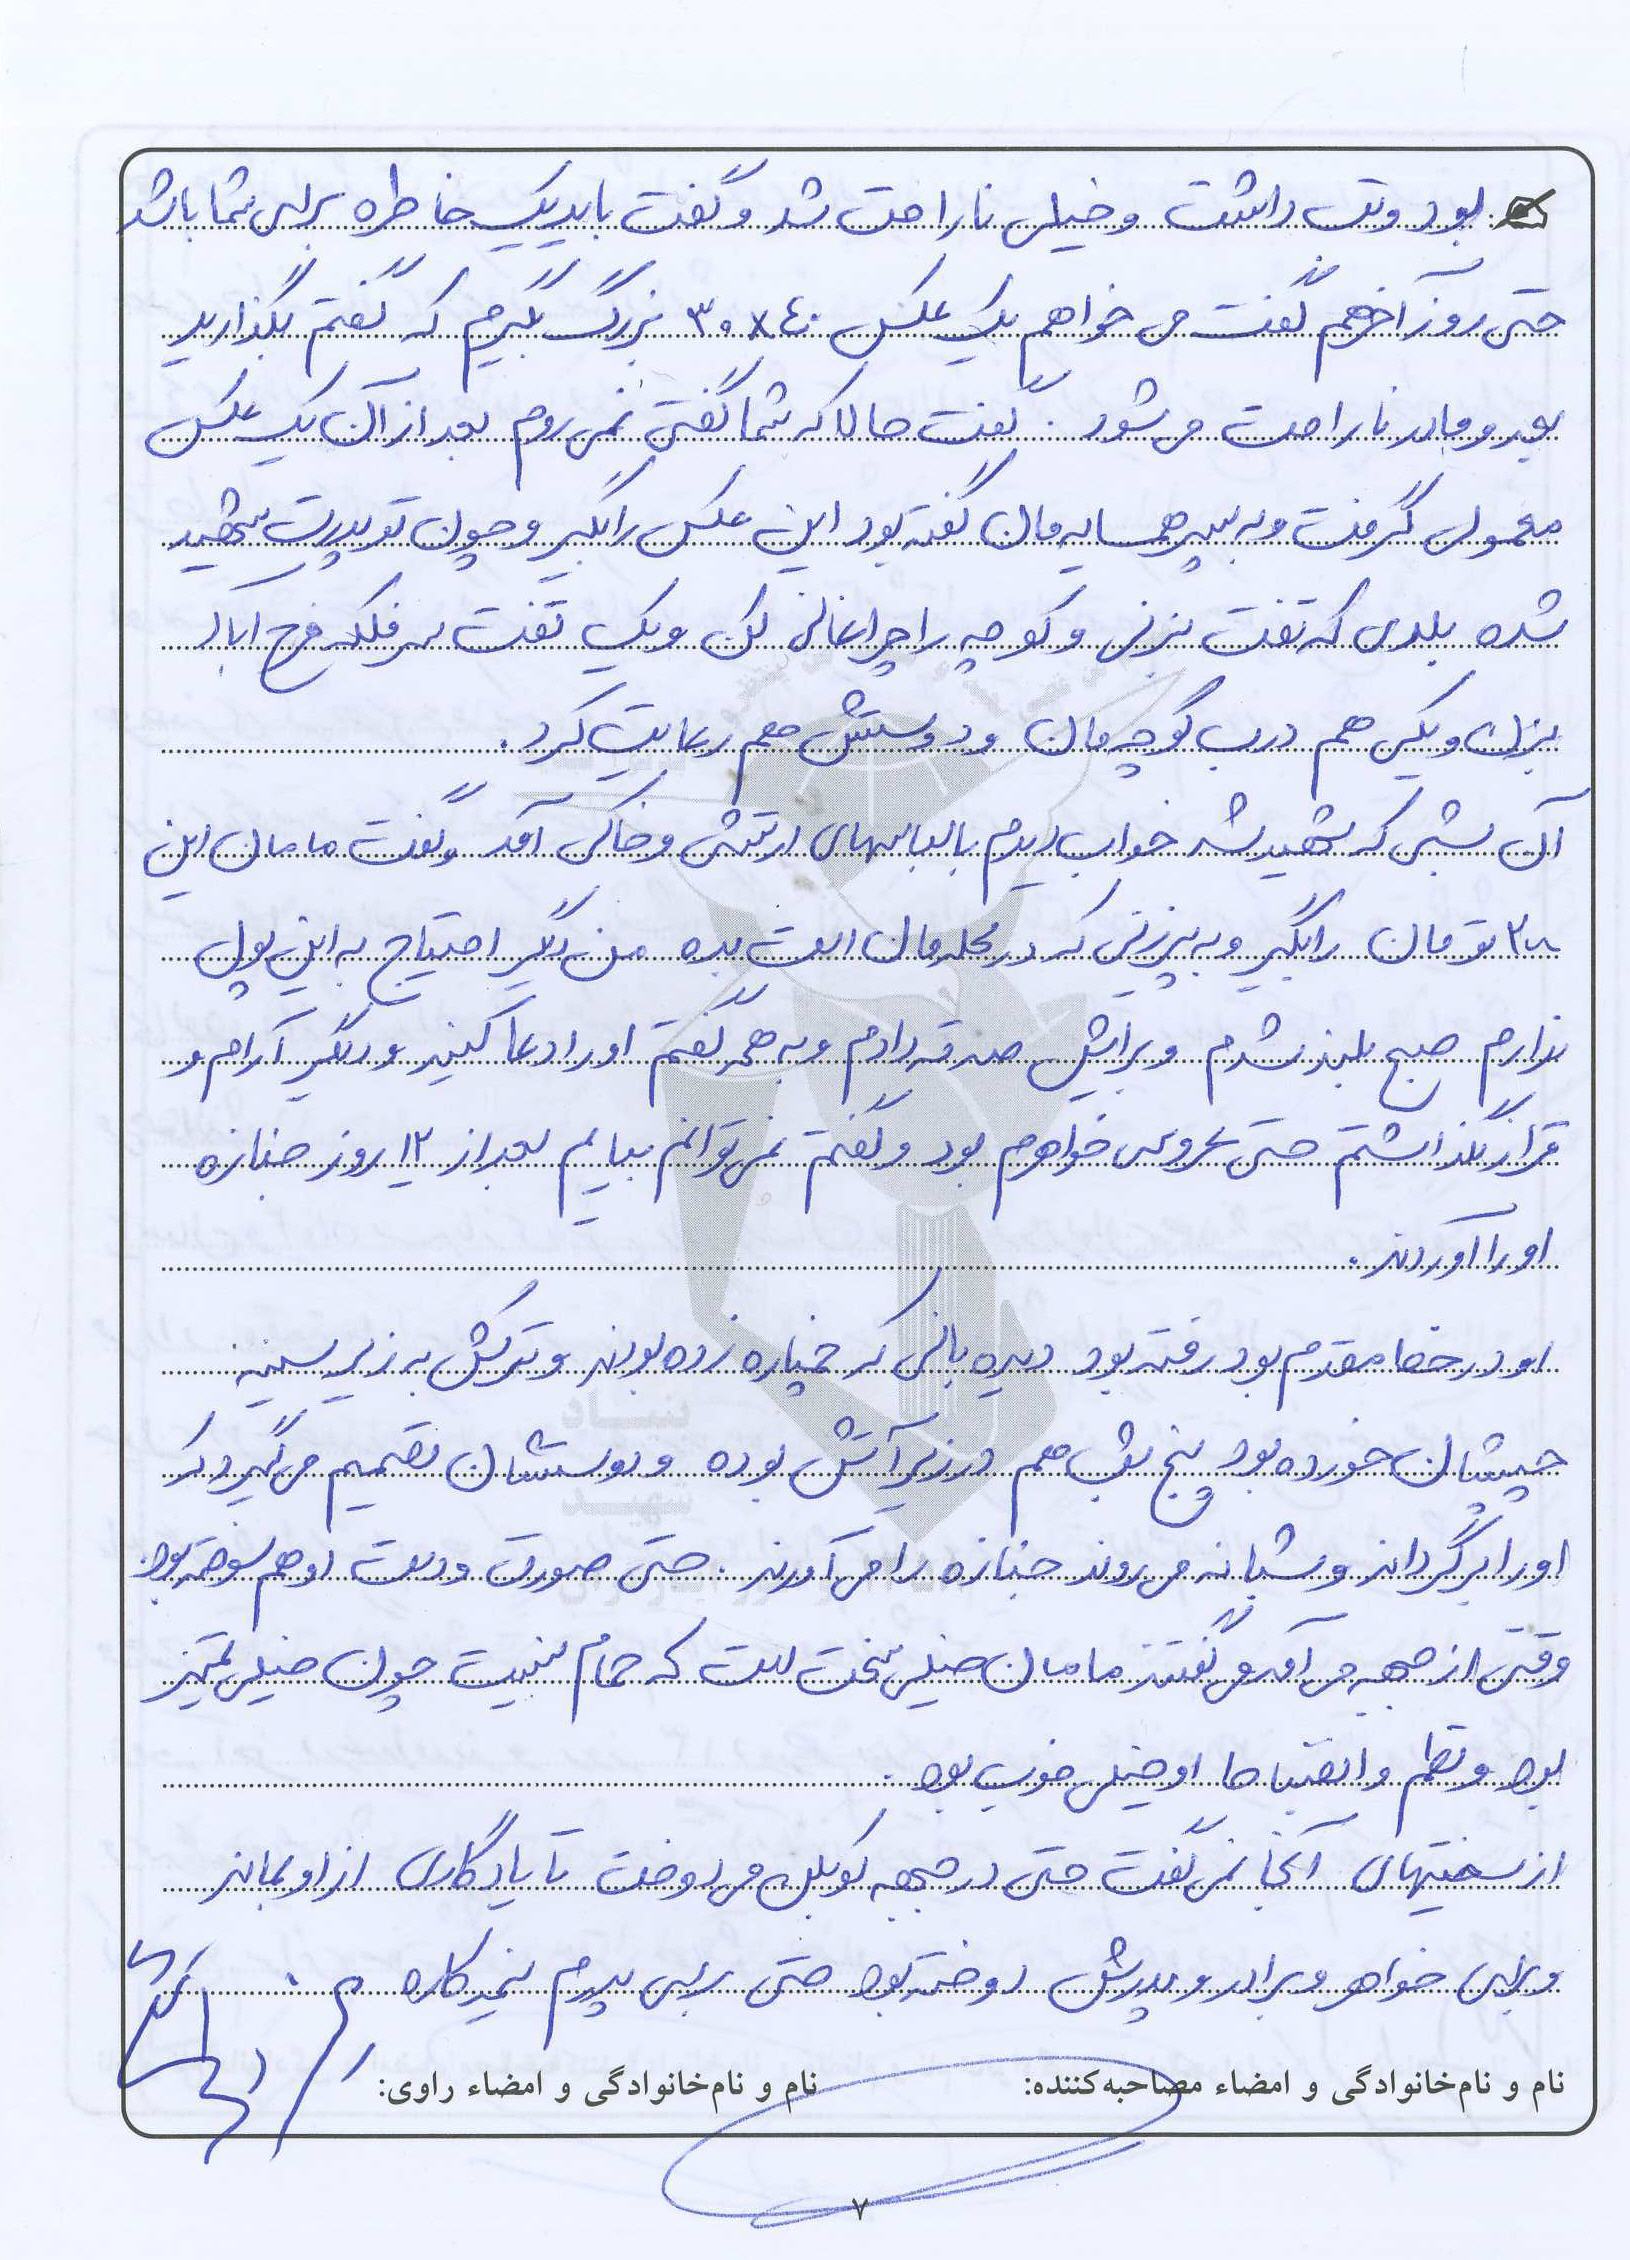 بود و تب داشت و خیلی ناراحت شد و گفت باید یک خاطره برای شما باشد
حتی روز آخر هم گفت می خواهم یک عکس ۴۰×۳۰ بزرگ بگیرم که گفتم بگذارید
پدر و مادر ناراحت می شود. گفت حالا که شما گفتی نمی روم بعد از آن یک عکس
معمولی گرفت و به پسر همسایه مان گفته بود این عکس را بگیر و چون تو پدرت شهید
شده بلدی که تفت بزنی و کوچه را چراغانی کن و یک تفت سر فلکه فرح آباد
بزن و یکی هم درب کوچه مان و دوستش هم رعایت کرد.
آن شبی که شهید شد خواب دیدم با لباسهای ارتشی و خاکی آمد و گفت مامان این
تومان را بگیر و به پیرزنی که در محله مان است بده من دیگر احتیاج به این پول
ندارم صبح بلند شدم و برایش صدقه دادم و به همه گفتم او را دعا کنید و دیگر آرام و
قرار نگذاشتم حتی عروسی خواهرم بود و گفتم نمی توانم بیایم بعد از ۱۲ روز جنازه
او را آوردند.
او در خط مقدم بود رفته بود دیده بانی که خمپاره زده بودند و ترکش به زیر سینه
چپشان خورده بود پنج شب هم در زیر آتش بوده و دوستشان تصمیم می گیرد که
او را برگرداند و شبانه می روند جنازه را می آورند. حتی صورت و دست او هم سوخته بود.
وقتی از جبهه می آمد می گفتند مامان خیلی سخت است که حمام نیست چون خیلی تمیز
بود و نظم و انضباط او خیلی خوب بود.
از سختیهای آنجا نمی گفت حتی در جبهه کوبلن می دوخت تا یادگاری از او بماند
و برای خواهر و برادر و پدرش دوخته بود حتی برای پدرم نیز
نام و نام‌خانوادگی و امضاء مصاحبه‌کننده: نام و نام‌خانوادگی و امضاء راوی:
۷